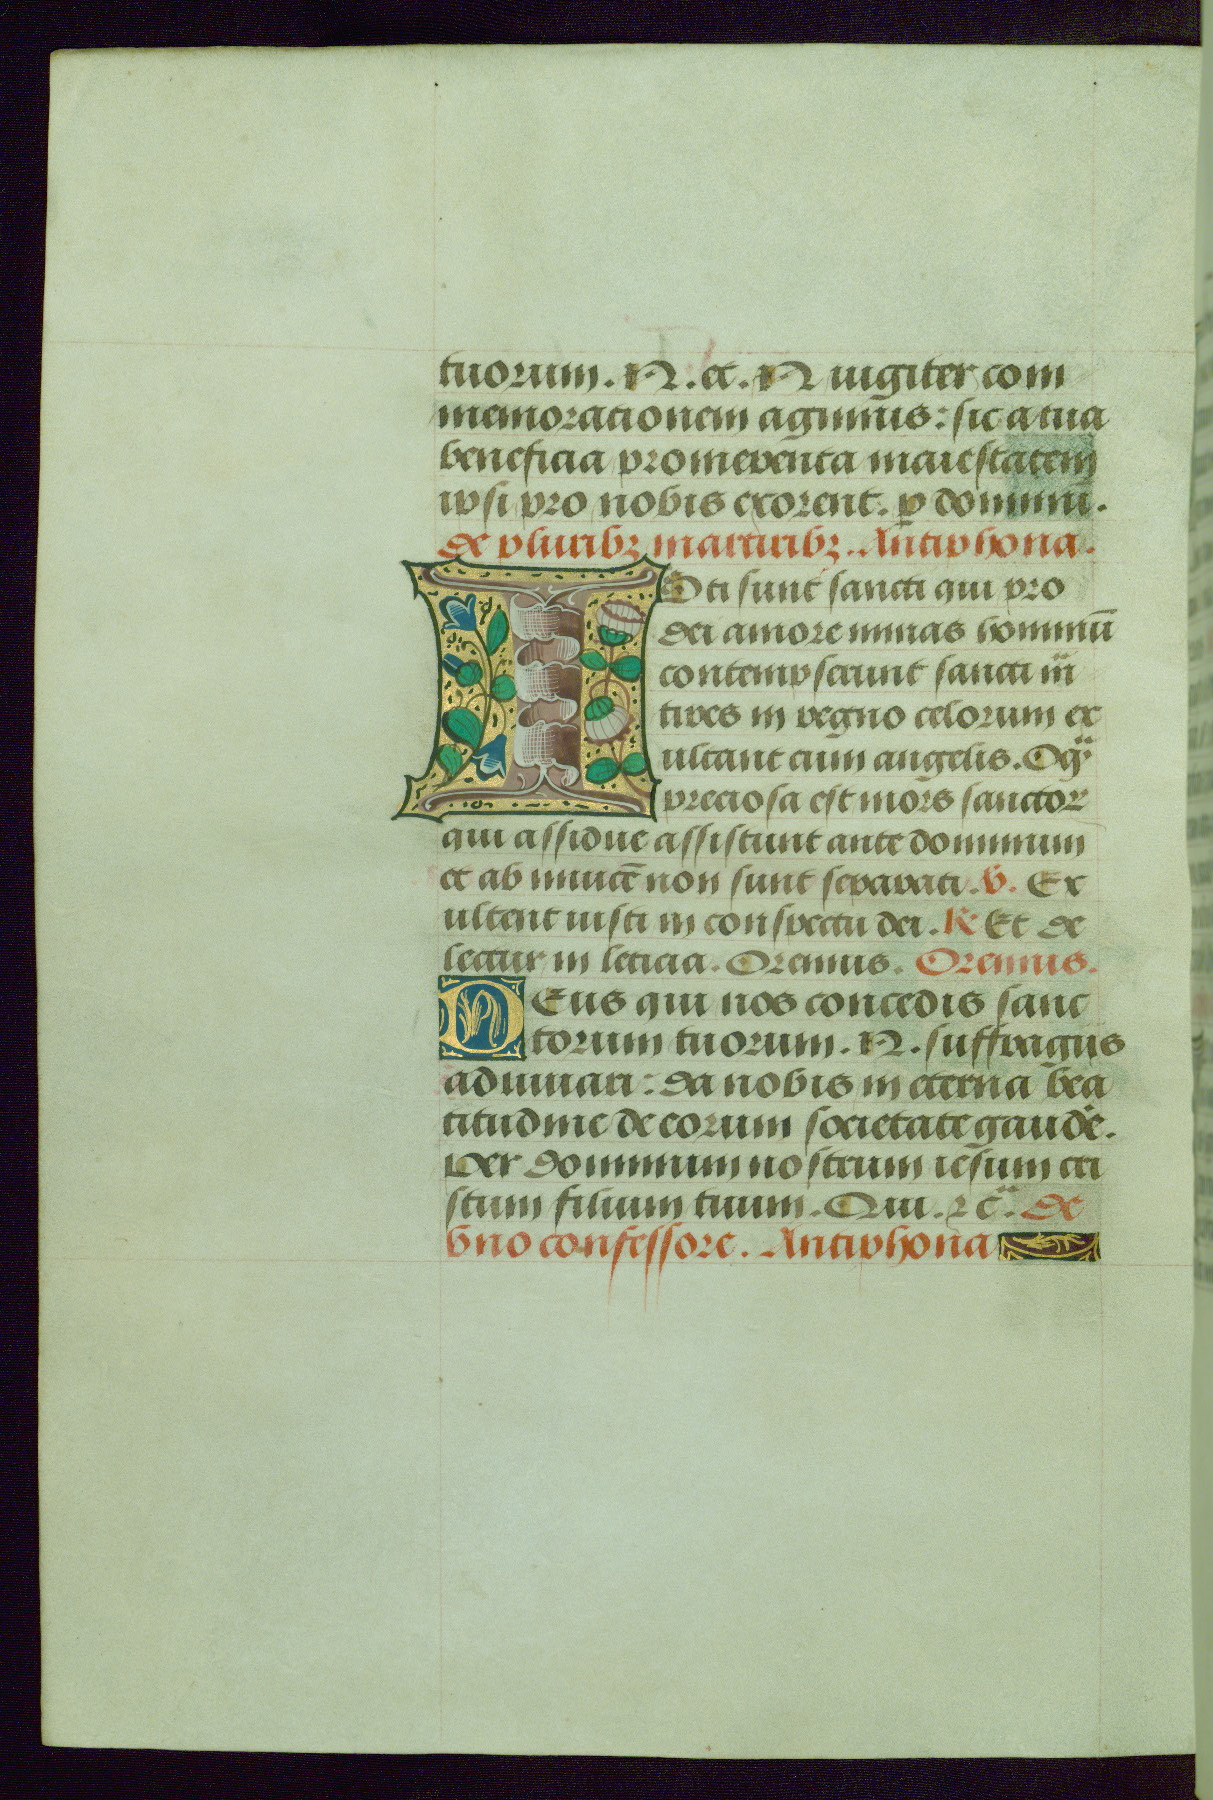 tuorum. N. et. N iugiter com
memorationem agimus: sic a tua
beneficia promerenta maiestatem
ipsi pro nobis exorent. p̱ dominū.
de pluribꝫ martiribꝫ. Antiphona.
Isti sunt sancti qui pro
dei amore minas hominū
contempserunt sancti m̄
tires in regno celorum ex
ultant cum angelis. O qͣ
preciosa est mors sanctor
qui assidue assistunt ante dominum
et ab inuicē non sunt separati. V. Ex
ultent iusti in conspectu dei. R Et de
lectur in leticia. Oremus. Oremus.
Deus qui nos concedis sanc
torum tuorum. N. suffragiis
adiuuari: da nobis in eterna bea
titudine de eorum societate gaudē.
Per dominum nostrum iesum cri
stum filium tuum. Qui. ⁊ c̄. de
vno confessore. Antiphona